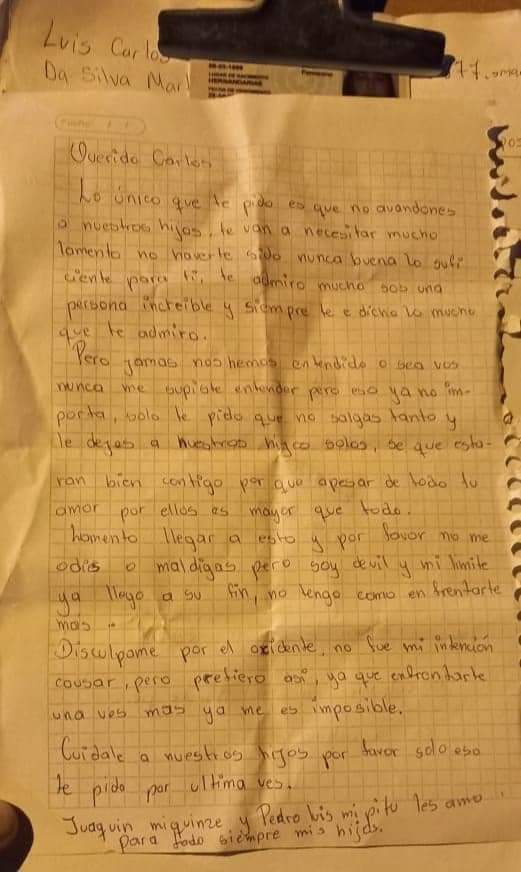 Luis Carlos
Da Silva Mar
77.oma
LUGAR DE NACIMIENTO
HERNANDARIAS
Querido Carlos
Lo único que te pido es que no avandones
a nuestros hijos, te van a necesitar mucho
lamento no haverte sido nunca buena lo sufi
ciente para ti, te admiro mucho sos una
persona increible y siempre te e dicho lo mucho
que te admiro.
Pero jamas nos hemos entendido o sea vos
nunca me supiste entender pero eso ya no im-
porta, solo te pido que no salgas tanto y
le dejes a nuestros hijos solos, se que esta-
ran bien contigo por que apesar de todo tu
amor por ellos es mayor que todo.
Lamento llegar a esto y por favor no me
odies o maldigas pero soy devil y mi limite
ya llego a su fin, no tengo como enfrentarte
mas..
Disculpame por el accidente, no fue mi intención
causar, pero prefiero así, ya que enfrontarte
una ves mas ya me es imposible.
Cuidale a nuestros hijos por favor solo eso
te pido por ultima ves.
Juaquin miquinze y Pedro luis mi pitu les amo.
para todo siempre mis hijos.